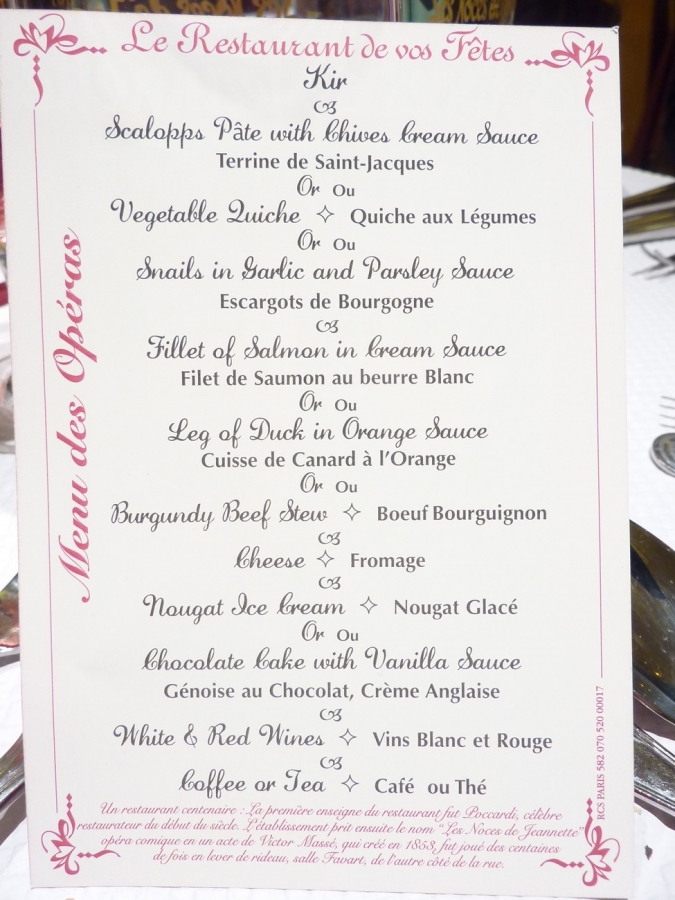 Le Restaurant de vos Fêtes
Kir
Scalopps Pâte with Chives Cream Sauce
Terrine de Saint-Jacques
Or Ou
Vegetable Quiche ✧ Quiche aux Légumes
Or Ou
Snails in Garlic and Parsley Sauce
Escargots de Bourgogne
Fillet of Salmon in Cream Sauce
Filet de Saumon au beurre Blanc
Or Ou
Leg of Duck in Orange Sauce
Cuisse de Canard à l'Orange
Or Ou
Burgundy Beef Stew ✧ Boeuf Bourguignon
Cheese ✧ Fromage
Nougat Ice Cream ✧ Nougat Glacé
Or Ou
Chocolate Cake with Vanilla Sauce
Génoise au Chocolat, Crème Anglaise
White & Red Wines ✧ Vins Blanc et Rouge
Coffee or Tea ✧ Café ou Thé
Un restaurant centenaire : La première enseigne du restaurant fut Poccardi, célèbre
restaurateur du début du siècle. L'établissement prit ensuite le nom "Les Noces de Jeannette"
opéra comique en un acte de Victor Massé, qui créé en 1853, fut joué des centaines
de fois en lever de rideau, salle Favart, de l'autre côté de la rue.
Menu des Opéras
RCS PARIS 582 070 520 00017